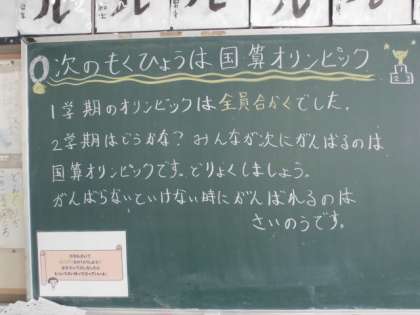 次のもくひょうは国算オリンピック
1学期のオリンピックは全員合かくでした.
2学期はどうかな?みんなが次にがんばるのは
国算オリンピックです。どりょくしましょう。
がんばらないといけない時にがんばれるのは
さいのうです。